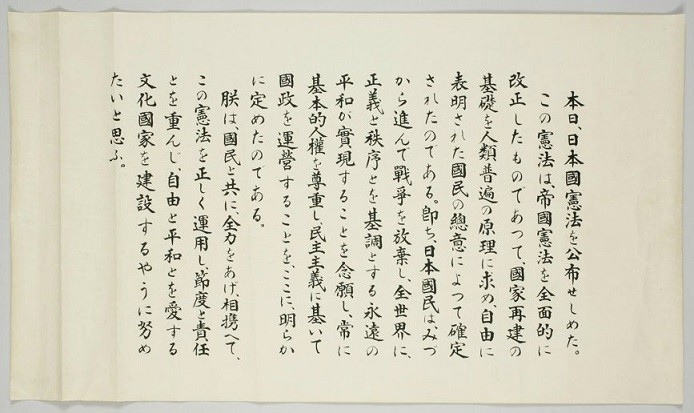 本日、日本國憲法を公布せしめた。
この憲法は、帝國憲法を全面的に
改正したものであつて、國家再建の
基礎を人類普遍の原理に求め、自由に
表明された國民の總意によつて確定
されたのである。卽ち、日本國民は、みづ
から進んで戰爭を放棄し、全世界に、
正義と秩序とを基調とする永遠の
平和が實現することを念願し、常に
基本的人權を尊重し、民主主義に基いて
國政を運營することを、ここに、明らか
に定めたのである。
朕は、國民と共に、全力をあげ、相携へて、
この憲法を正しく運用し、節度と責任
とを重んじ、自由と平和とを愛する
文化國家を建設するやうに努め
たいと思ふ。